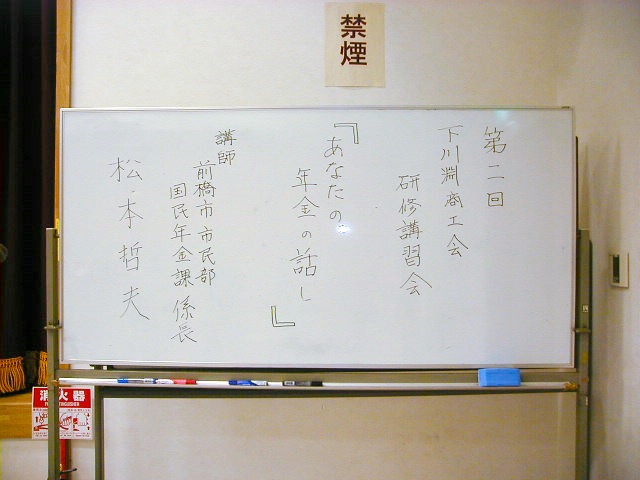 禁煙
第二回
下川淵商工会
研修講習会
『あなたの
年金の話し』
講師
前橋市市民部
国民年金課 係長
松本哲夫
消火器